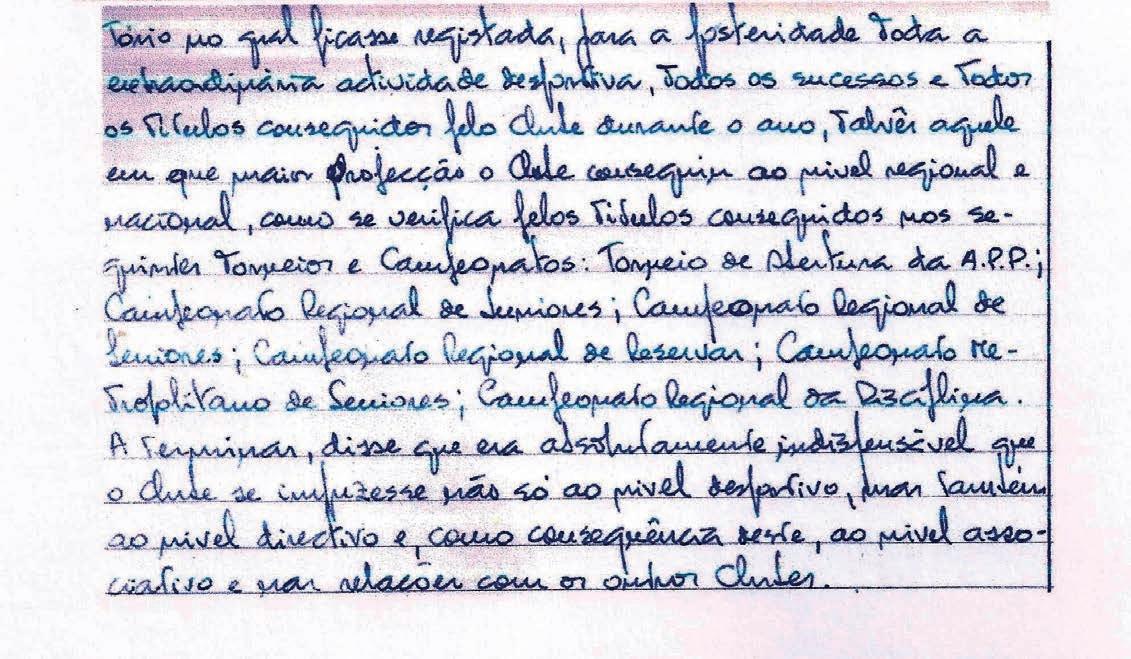 tório no qual ficasse registada, para a posteridade toda a
extraordinária actividade desportiva, todos os sucessos e todos
os títulos conseguidos pelo Clube durante o ano, talvês aquele
em que maior projecção o Clube conseguiu ao nível regional e
nacional, como se verifica pelos títulos conseguidos nos se-
guintes Torneios e Campeonatos: Torneio de Abertura da A.P.P.;
Campeonato Regional de Juniores; Campeonato Regional de
Seniores; Campeonato Regional de Reservas; Campeonato Me-
tropolitano de Seniores; Campeonato Regional da Disciplina.
A terminar, disse que era absolutamente indispensável que
o Clube se impuzesse não só ao nível desportivo, mas também
ao nível directivo e, como consequência deste, ao nível asso-
ciativo e nas relações com os outros Clubes.